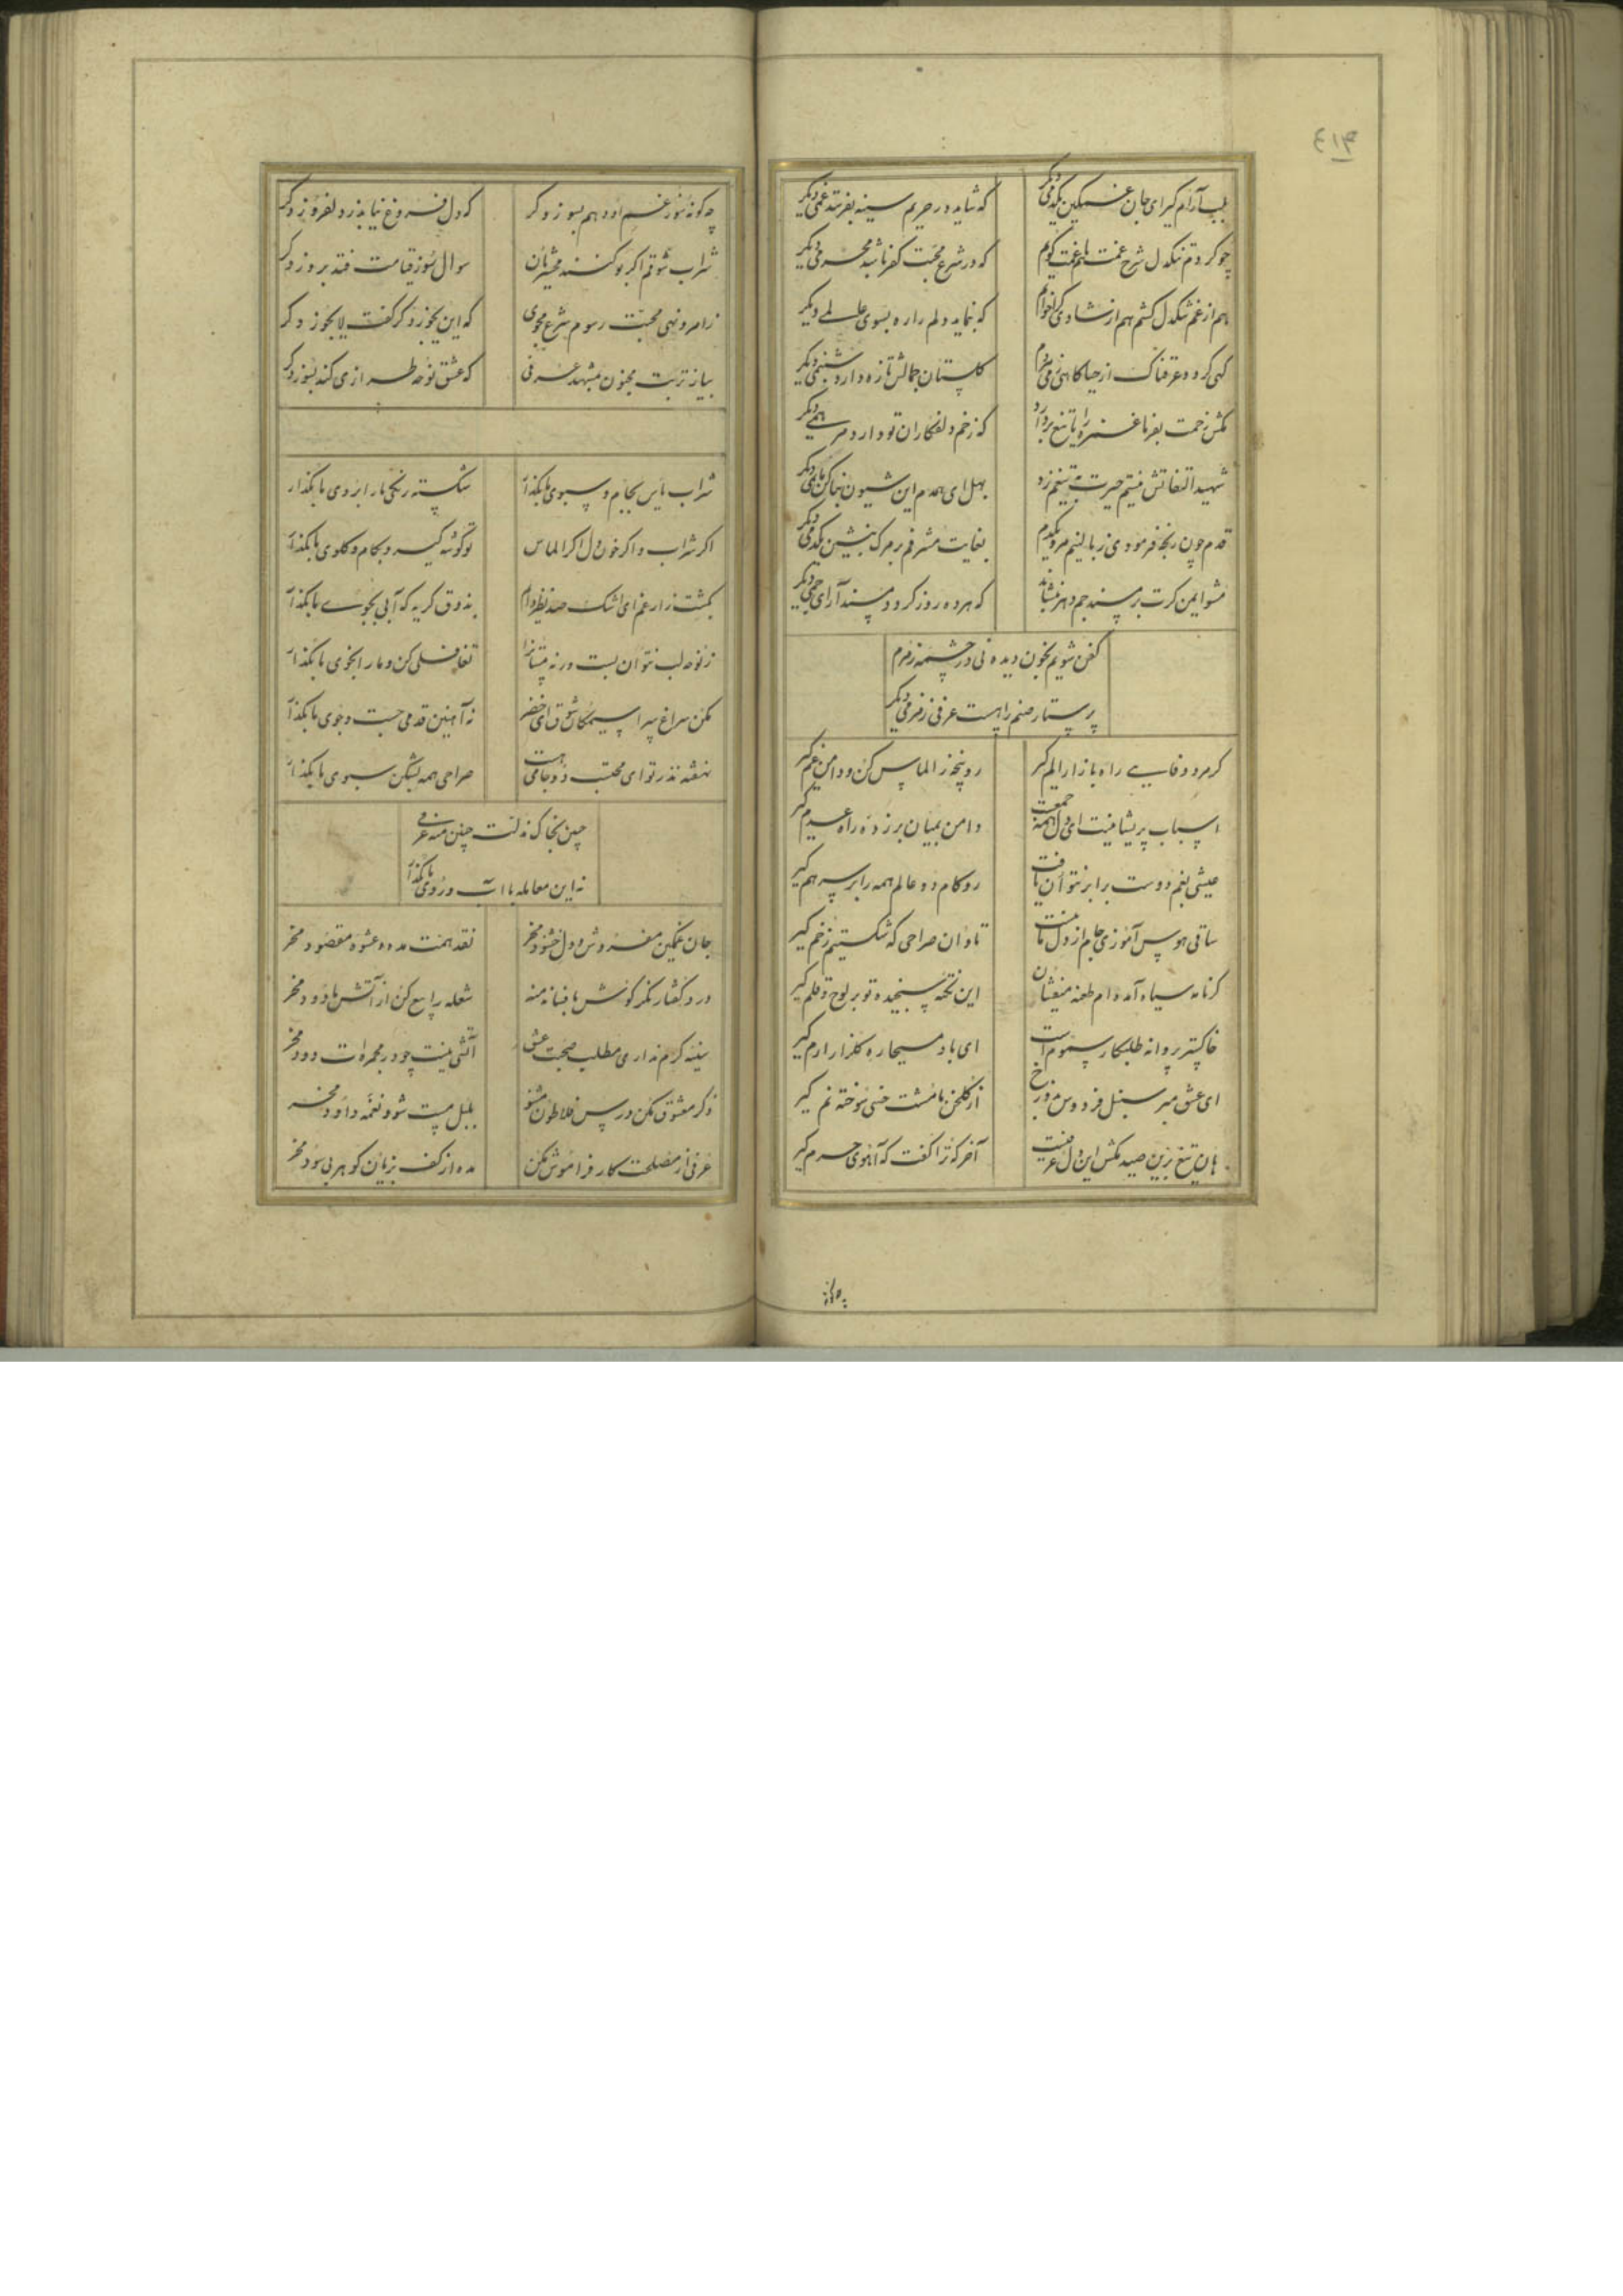 ٤١٣
بلب آرام گیر ای جان غمگین یکدمی دیگر
که شاید در حریم سینه بفرستد غمی دیگر
چو کردم تنگدل شرح غمت هم با غمت گویم
که در شرع محبت کفر باشد محرمی دیگر
هم از غم تنگدل گشتم هم از شادی
که بنماید دلم را ره بسوی عالمی دیگر
گهی گردد عرقناک از حیا گاهی ز می
گلستان جمالش تازه دارد شبنمی دیگر
مکش زحمت بفرما غمزه را تا تیغ بردارد
که زخم دلفکاران تو دارد مرهمی دیگر
شهید التفاتش نیستم حیرت به تیغم زد
بهل ای همدم این شیون بنا کن ماتمی دیگر
قدم چون رنجه فرمودی ز بالینم مرو یکدم
بغایت مشرفم بر مرگ بنشین یکدمی دیگر
مشو ایمن گرت بر مسند جم دهر بنشاند
که هر ده روز گردد مسند آرای جمی دیگر
کفن شویم بخون دیده نی در چشمه زمزم
پرستار صنم را هست عرفی زمزمی دیگر
گر مرد وفایی راه بازار الم گیر
رو پنجه ز الماس کن و دامن غم گیر
اسباب پریشانیست ای دل همه جمعست
دامن بمیان بر زده راه عدم گیر
عیشی بغم دوست برابر نتوان یافت
رو کام دو عالم همه را بر سر هم گیر
ساقی هوس آموزی جام از دل ما نیست
تاوان صراحی که شکستیم ز خم گیر
گر نامه سیاه آمده‌ام طعنه میفشان
این نکته پسنجیده تو بر لوح و قلم گیر
خاکستر پروانه طلبکار سموم است
ای باد مسیحا ره گلزار ارم گیر
ای عشق مبر سنبل فردوس بدوزخ
از گلخن ما مشت خسی سوخته نم گیر
هان تیغ بزن صید مکش این دل عرفیست
آخر که ترا گفت که آهوی حرم گیر
چه گونه سوز غم او دهم بسوز دگر
که دل فروغ نیابد ز دلفروز دگر
شراب شوقم اگر بو کنند محشریان
سوال سوز قیامت فتد بروز دگر
ز امر و نهی محبت رسوم شرع مجوی
که این یجوز دگر گفت لا یجوز دگر
بیا ز تربت مجنون بمشهد عرفی
که عشق نوحه طرازی کند بسوز دگر
شراب یاس بجام و سبوی ما بگذار
شکسته رنگی ما را بروی ما بگذار
اگر شراب و اگر خون دل اگر الماس
تو گوشه گیر و بکام و گلوی ما بگذار
بکشت زار غم ای اشک صد نظر دارم
بذوق گریه که آبی بجوی ما بگذار
ز نوحه لب نتوان بست ورنه مستانرا
تغافلی کن و ما را بخوی ما بگذار
مکن سراغ پیرا سیمگان شوق ای خضر
نه آهنین قدمی جست و جوی ما بگذار
نهفته نذر تو ای محتسب دو جامی هست
صراحی همه بشکن سبوی ما بگذار
جبین بخاک مذلت چنین منه عرفی
نه این معامله با آب روی ما بگذار
جان غمگین مفروش و دل خشنود مخر
نقد همت مده و عشوه مقصود مخر
درد گفتار مگر گوش بافسانه منه
شعله را بیع کن از آتش ما دود مخر
سینه گرم نداری مطلب صحبت عشق
آتشی نیست چو در مجمره‌ات دود مخر
ذکر معشوق مکن درس فلاطون مشنو
بلبل مست شو و نغمه داود مخر
عرفی از مصلحت کار فراموش مکن
مده از کف بزیان گوهر بی سود مخر